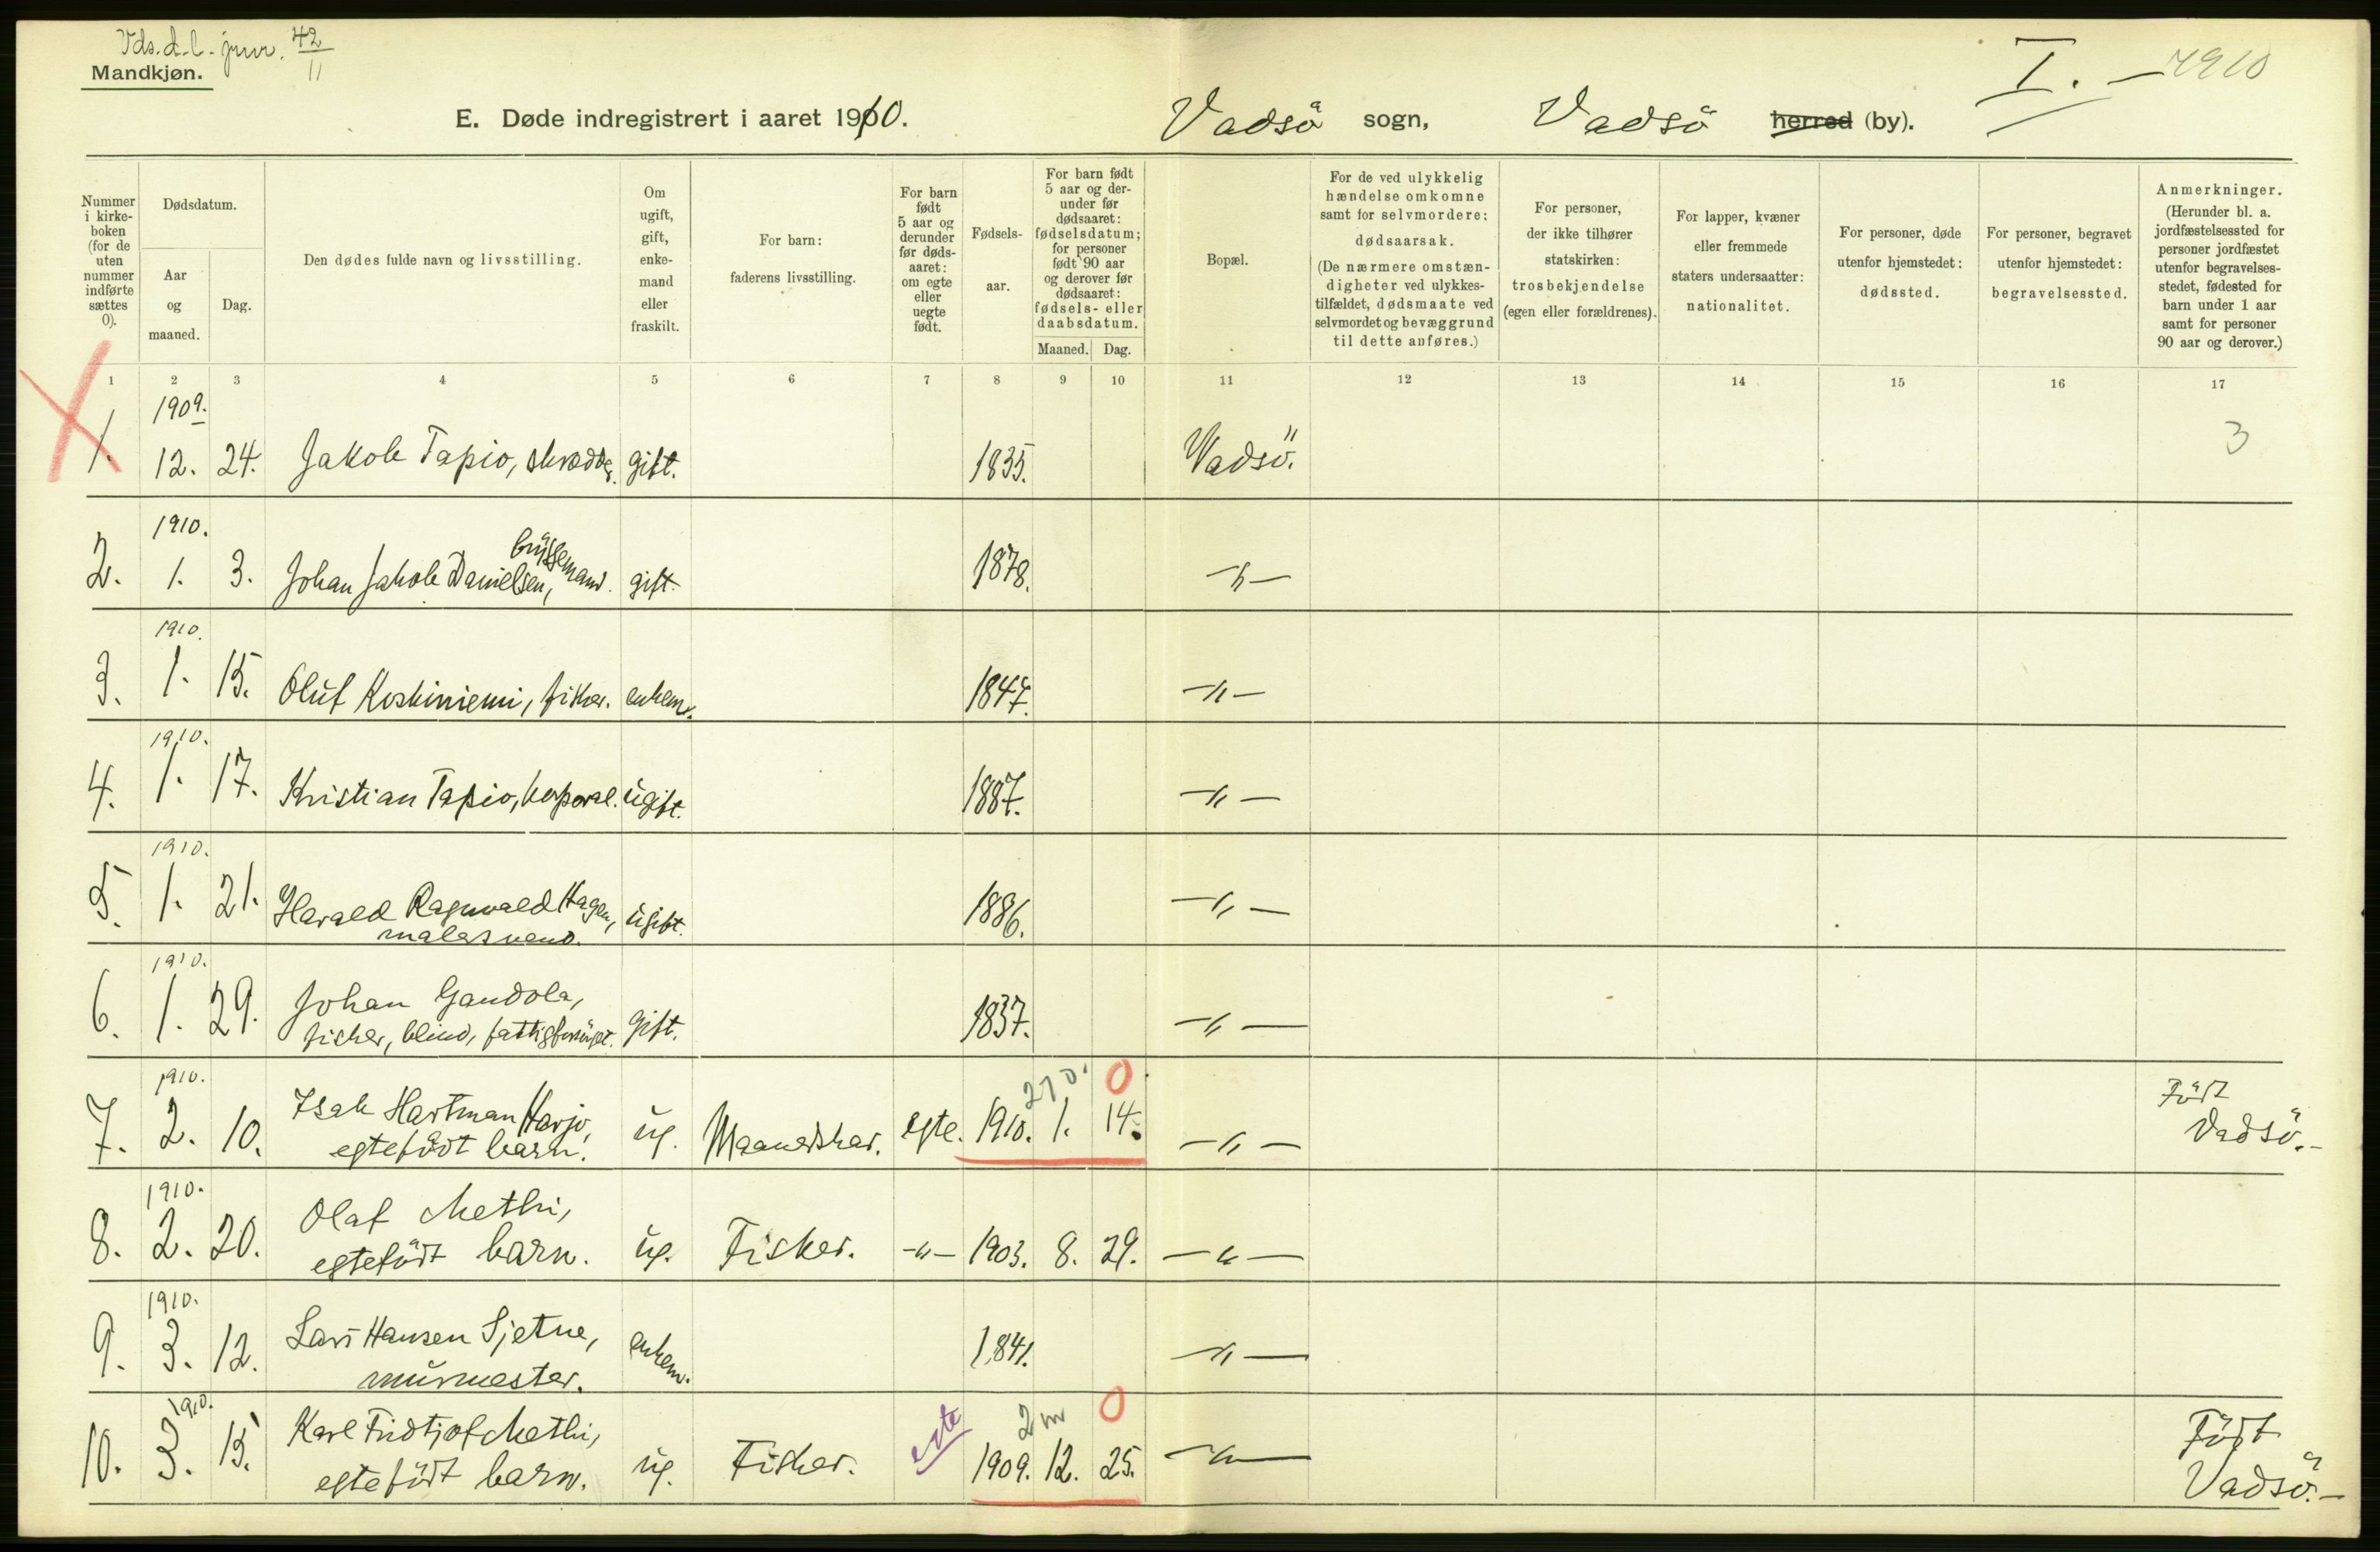 Vds. d. l. jour. 42/11
Mandkjøn.
I. — 1910
E. Døde indregistrert i aaret 1910. Vadsö sogn, Vadsö herred (by).
Nummer i kirke-boken (for de uten nummer indførte sættes 0).
Dødsdatum.
Aar og maaned.
Dag.
Den dødes fulde navn og livsstilling.
Om ugift, gift, enke-mand eller fraskilt.
For barn: faderens livsstilling.
For barn født 5 aar og derunder før døds-aaret: om egte eller uegte født.
Fødsels-aar.
For barn født 5 aar og der-under før dødsaaret: fødselsdatum; for personer født 90 aar og derover før dødsaaret: fødsels- eller daabsdatum.
Maaned. Dag.
Bopæl.
For de ved ulykkelig hændelse omkomne samt for selvmordere: dødsaarsak. (De nærmere omstæn-digheter ved ulykkes-tilfældet, dødsmaate ved selvmordet og bevæggrund til dette anføres.)
For personer, der ikke tilhører statskirken: trosbekjendelse (egen eller forældrenes).
For lapper, kvæner eller fremmede staters undersaatter: nationalitet.
For personer, døde utenfor hjemstedet: dødssted.
For personer, begravet utenfor hjemstedet: begravelsessted.
Anmerkninger. (Herunder bl. a. jordfæstelsessted for personer jordfæstet utenfor begravelses-stedet, fødested for barn under 1 aar samt for personer 90 aar og derover.)
1 2 3 4 5 6 7 8 9 10 11 12 13 14 15 16 17
1909.
1. 12. 24. Jakob Tapio, skrædder. gift. 1835. Vadsö. 3
1910.
2. 1. 3. Johan Jakob Danielsen, bryssemand. gift. 1878. —"—
1910.
3. 1. 15. Oluf Koskiniemi, fisker. enkem. 1847. —"—
1910.
4. 1. 17. Kristian Tapio, korporal. ugift. 1887. —"—
1910.
5. 1. 21. Harald Ragnvald Hagen, ugift. 1886. —"—
malersvend.
1910.
6. 1. 29. Johan Gandola, gift. 1837. —"—
fisker, blind, fattigforsörget.
1910. 27 d. 0
7. 2. 10. Isak Hartman Harjo, ug. Maanedskar. egte. 1910. 1. 14. —"— Födt
egtefödt barn. Vadsö.—
1910.
8. 2. 20. Olaf Methi, ug. Fisker. —"— 1903. 8. 29. —"—
egtefödt barn.
1910.
9. 3. 12. Lars Hansen Sjetne, enkem. 1841. —"—
murmester.
1910. 2 m 0
10. 3. 15. Karl Fridtjof Methi, ug. Fisker. egte 1909. 12. 25. —"— Födt
egtefödt barn. Vadsö.—